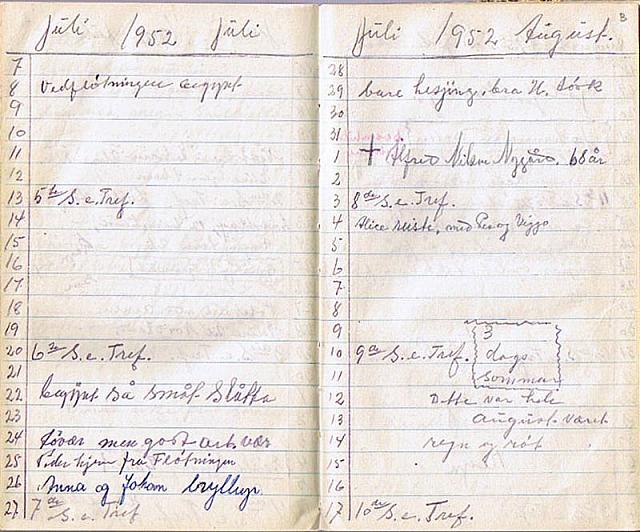 Juli 1952 Juli
7
8 Vedfløtningen begynt
9
10
11
12
13 5te S. e. Tref.
14
15
16
17
18
19
20 6te S. e. Tref.
21
22 begynt så småt Slåtta
23
24 godt arb. vær
25 Peder hjem fra Fløtningen
26 Anna og Johan bryllup
27 7de S. e. Tref
Juli 1952 August.
28
29 bare hesjing, bra H. tørk
30
31
1 † Alfred Nilsen Nygård. 68 år
2
3 8de S. e. Tref.
4 Alice reiste, med Per og Viggo
5
6
7
8
9 3
10 9de S. e. Tref. dags
11 sommar
12 Dette var hele
13 August-været
14 regn og
15
16
17 10de S. e. Tref.